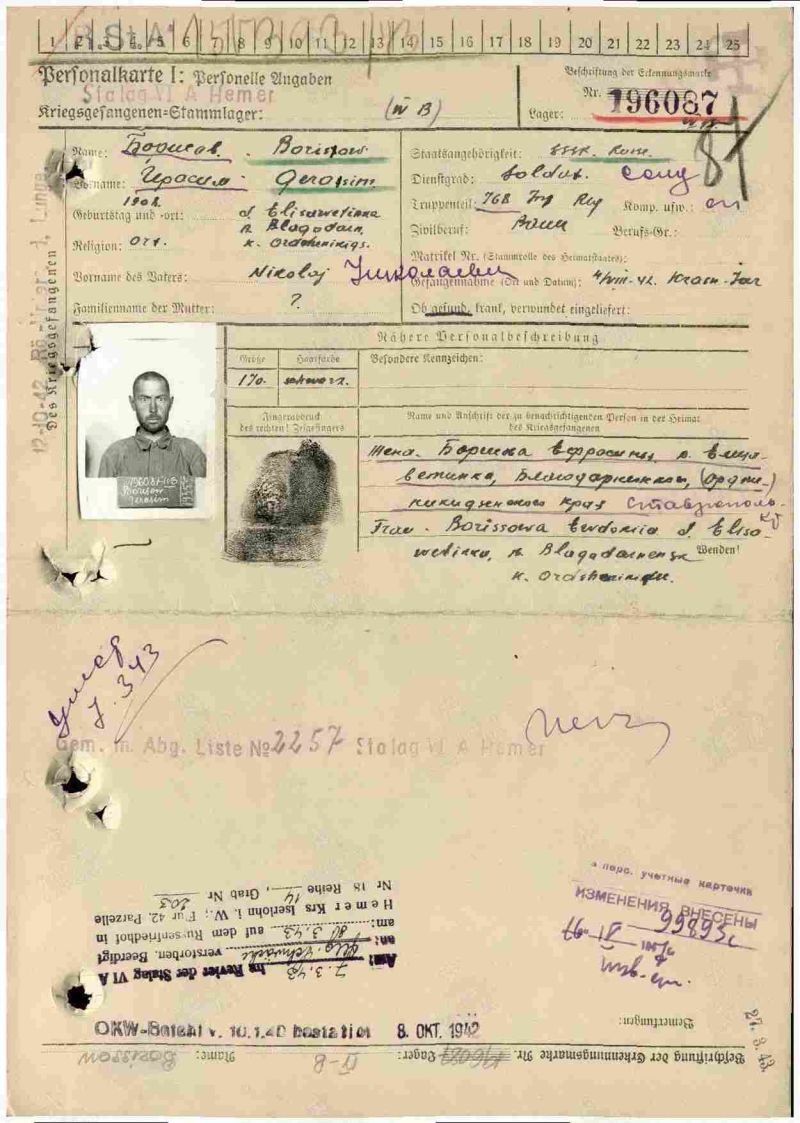 1 2 3 4 5 6 7 8 9 10 11 12 13 14 15 16 17 18 19 20 21 22 23 24 25
Personalkarte I: Personelle Angaben
Stalag VI A Hemer
Kriegsgefangenen-Stammlager: (IV B)
Beschriftung der Erkennungsmarke
Nr. 196087
Lager: IV B
Name: Борисов. Borissow
Vorname: Герасим Gerassim
Geburtstag und -ort: 1908. d. Elisawetinna
r. Blagodarn.
k. Ordshenikigs.
Religion: Ort.
Vorname des Vaters: Nikolaj Николаевич
Familienname der Mutter: ?
Staatsangehörigkeit: SSSR. Russ.
Dienstgrad: Soldat. солд
Truppenteil: 768 Inf Reg Komp. usw.: сп
Zivilberuf: Bauer Berufs-Gr.:
Matrikel Nr. (Stammrolle des Heimatstaates):
Gefangennahme (Ort und Datum): 4/VIII-42. Krasn-Jar
Ob gesund, krank, verwundet eingeliefert:
12-10-42
Des Kriegsgefangenen
Nähere Personalbeschreibung
Größe Haarfarbe Besondere Kennzeichen:
170. schwarz.
Fingerabdruck
des rechten! Zeigefingers
Name und Anschrift der zu benachrichtigenden Person in der Heimat
des Kriegsgefangenen
196087 IVB
Borissow
Gerassim
Жена. Борисова Ефросинья д. Елиза-
ветинка, Благодарненск, (Орджо-
никидзенского края Ставрополь-
Frau. Borissowa Ewdomia d. Eliso-
wetinka, r. Blagodarnensk
k. Ordshenikids.
Wenden!
умер
7.3.43
Gem. in. Abg. Liste № 2257 Stalag VI A Hemer
Am: 7.3.43 im Revier der Stalag VI A
an: Allg. Schwäche verstorben. Beerdigt
am: 10.3.43 auf dem Russenfriedhof in
Hemer Krs Iserlohn i. W.; Flur 42. Parzelle
Nr 18 Reihe 14, Grab Nr 203
в перс. учетные карточки
ИЗМЕНЕНИЯ ВНЕСЕНЫ
99893с
OKW-Befehl v. 10.1.42 bestätigt 8. OKT. 1942
27.3.43.
Bemerkungen:
Beschriftung der Erkennungsmarke Nr. 196087 Lager: IV-B Name: Borissow